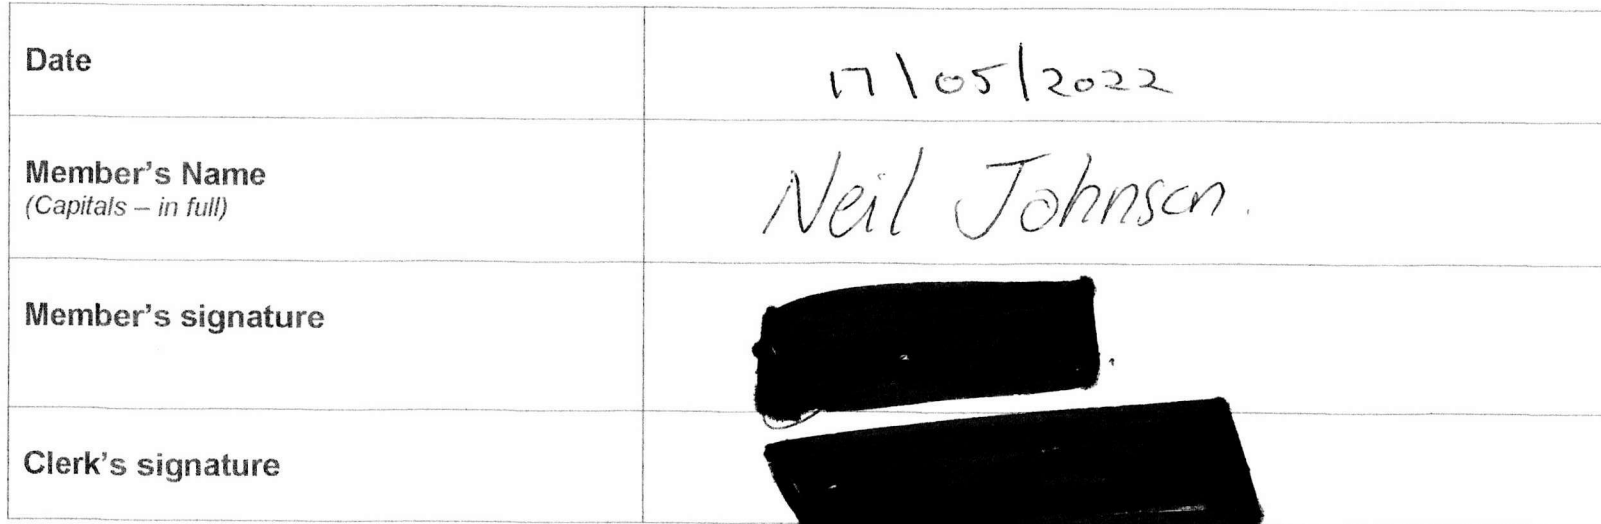 Date
17/05/2022
Member's Name
(Capitals – in full)
Neil Johnson.
Member's signature
Clerk's signature